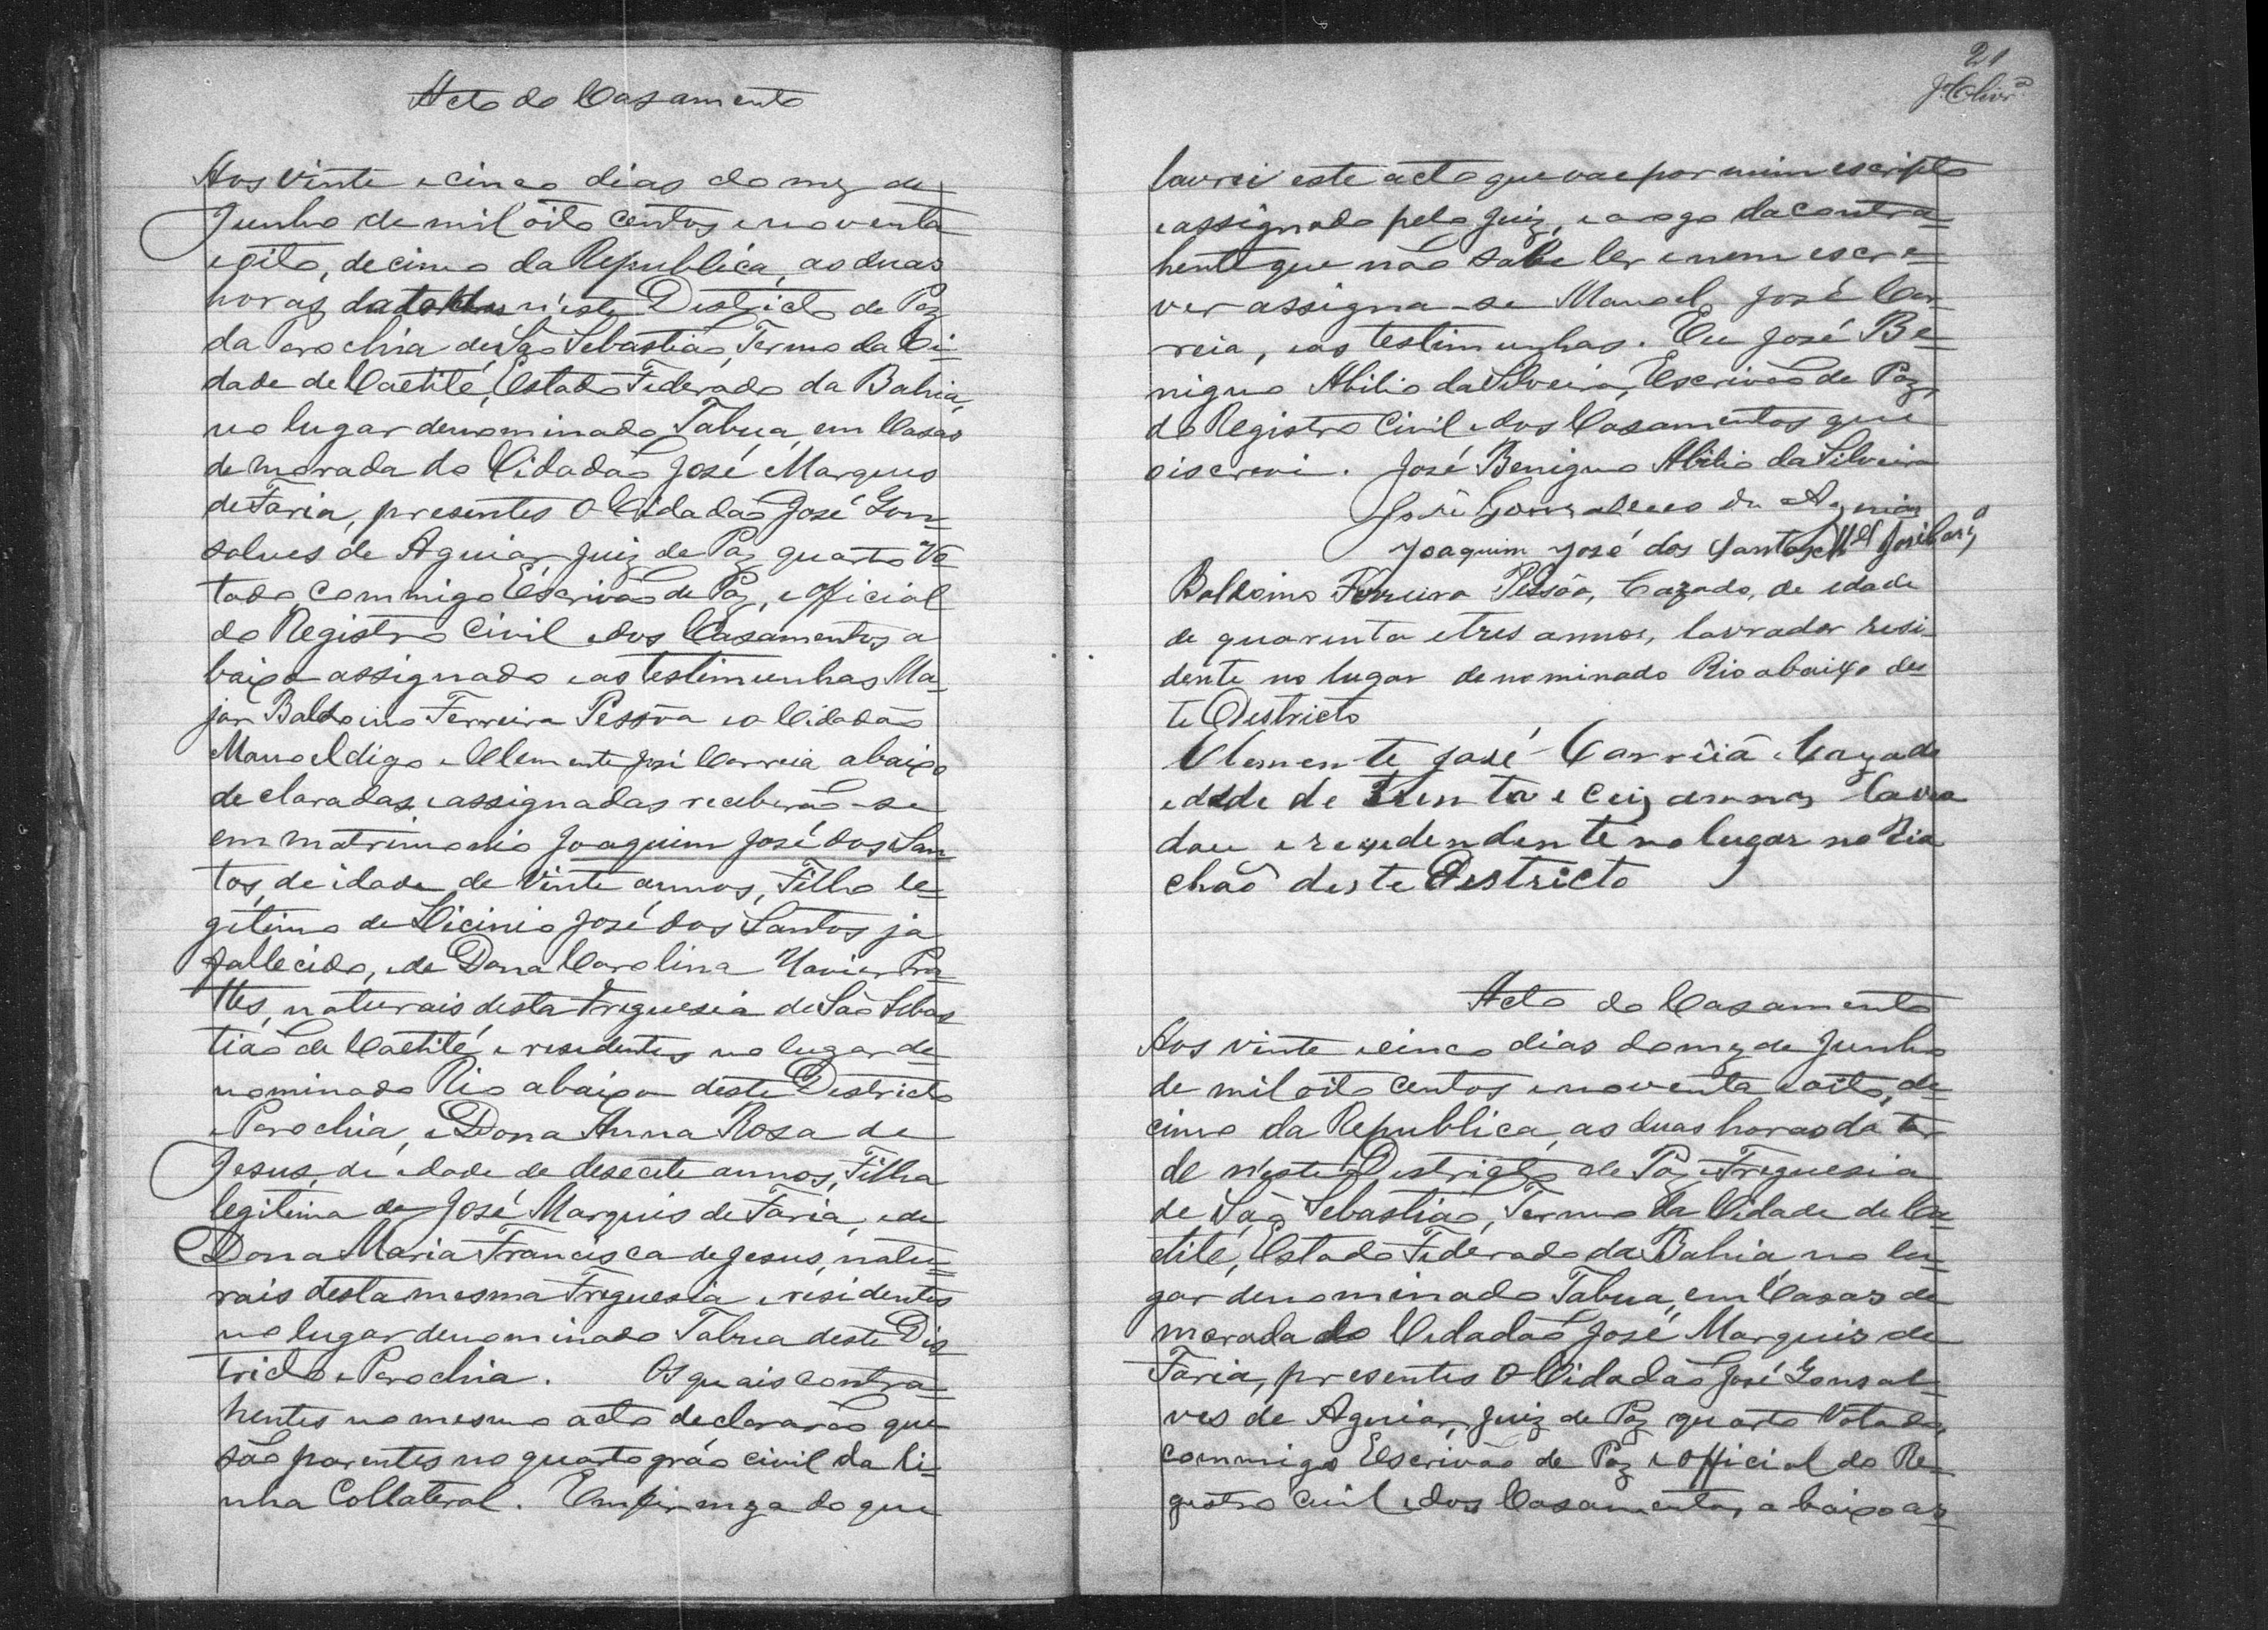 Acto do Casamento
Aos vinte e cinco dias do mez de
Junho de mil oito centos e noventa
e oito, decimo da Republica, as duas
horas da tarde n'este Destricto de Paz
da Parochia de São Sebastião, Termo da Ci-
dade de Caetité, Estado Federado da Bahia,
no lugar denominado Tabua, em Casas
de morada do Cidadão José Marques
de Faria, presentes O Cidadão José Gon-
salves de Aguiar, Juiz de Paz quarto Vo-
tado commigo Escrivão de Paz, e official
do Registro Civil e dos Casamentos a
baixo assignado e as testimunhas Ma-
jor Baldoino Ferreira Pessôa e o Cidadão
Manoel digo e Clemente José Correia abaixo
declaradas e assignadas receberão-se
em matrimonio Joaquim José dos San-
tos, de idade de Vinte annos, Filho le-
gitimo de Licinio José dos Santos ja
fallecido, e de Dona Carolina Xavier Pra-
tes, naturais desta Freguesia de São Sebas-
tião de Caetité, e residentes no lugar de-
nominado Rio abaixo deste Destricto
e Parochia, e Dona Anna Rosa de
Jesus, de edade de desecete annos, Filha
legitima de José Marques de Faria, e de
Dona Maria Francisca de Jesus, natu-
rais desta mesma Freguesia e residentes
no lugar denominado Tabua deste Dis-
tricto e Parochia. Os quais contra-
hentes no mesmo acto declararão que
são parentes no quarto gráo civil da li-
nha Collateral. Em firmeza do que
21
J. Olivrª
lavrei este acto que vae por mim escripto
e assignado pelo Juiz, e a rogo da contra-
hente que não sabe ler e nem escre-
ver assigna-se Manoel José Cor-
reia, e as testimunhas. Eu José Be-
nigno Abilio da Silveira, Escrivão de Paz,
do Registro Civil e dos Casamentos que
o iscrevi. José Benigno Abilio da Silveira
José Gonsalves de Aguiar
Joaquim José dos Santos Mel José Corª
Baldoino Ferreira Pessôa, Cazado, de edade
de quarenta e tres annos, lavrador resi-
dente no lugar denominado Rio abaixo des-
te Destricto
Clemente José Corrêia Cazado
edade de trenta e Ceiz annos lavra
dou e rezedendente no lugar no Ria
chão deste Destricto
Acto do Casamento
Aos vinte e cinco dias do mez de Junho
de mil oito centos e noventa e oito, de-
cimo da Republica, as duas horas da tar-
de n'este Destricto de Paz e Freguesia
de São Sebastião, Termo da Cidade de Cae-
tité, Estado Federado da Bahia, no lu-
gar denominado Tabua, em Casas de
morada do Cidadão José Marquis de
Faria, presentes O Cidadão José Gonsal-
ves de Aguiar, Juiz de Paz quarto Votado,
commigo Escrivão de Paz e official do Re-
gistro Civil e dos Casamentos, abaixo as-